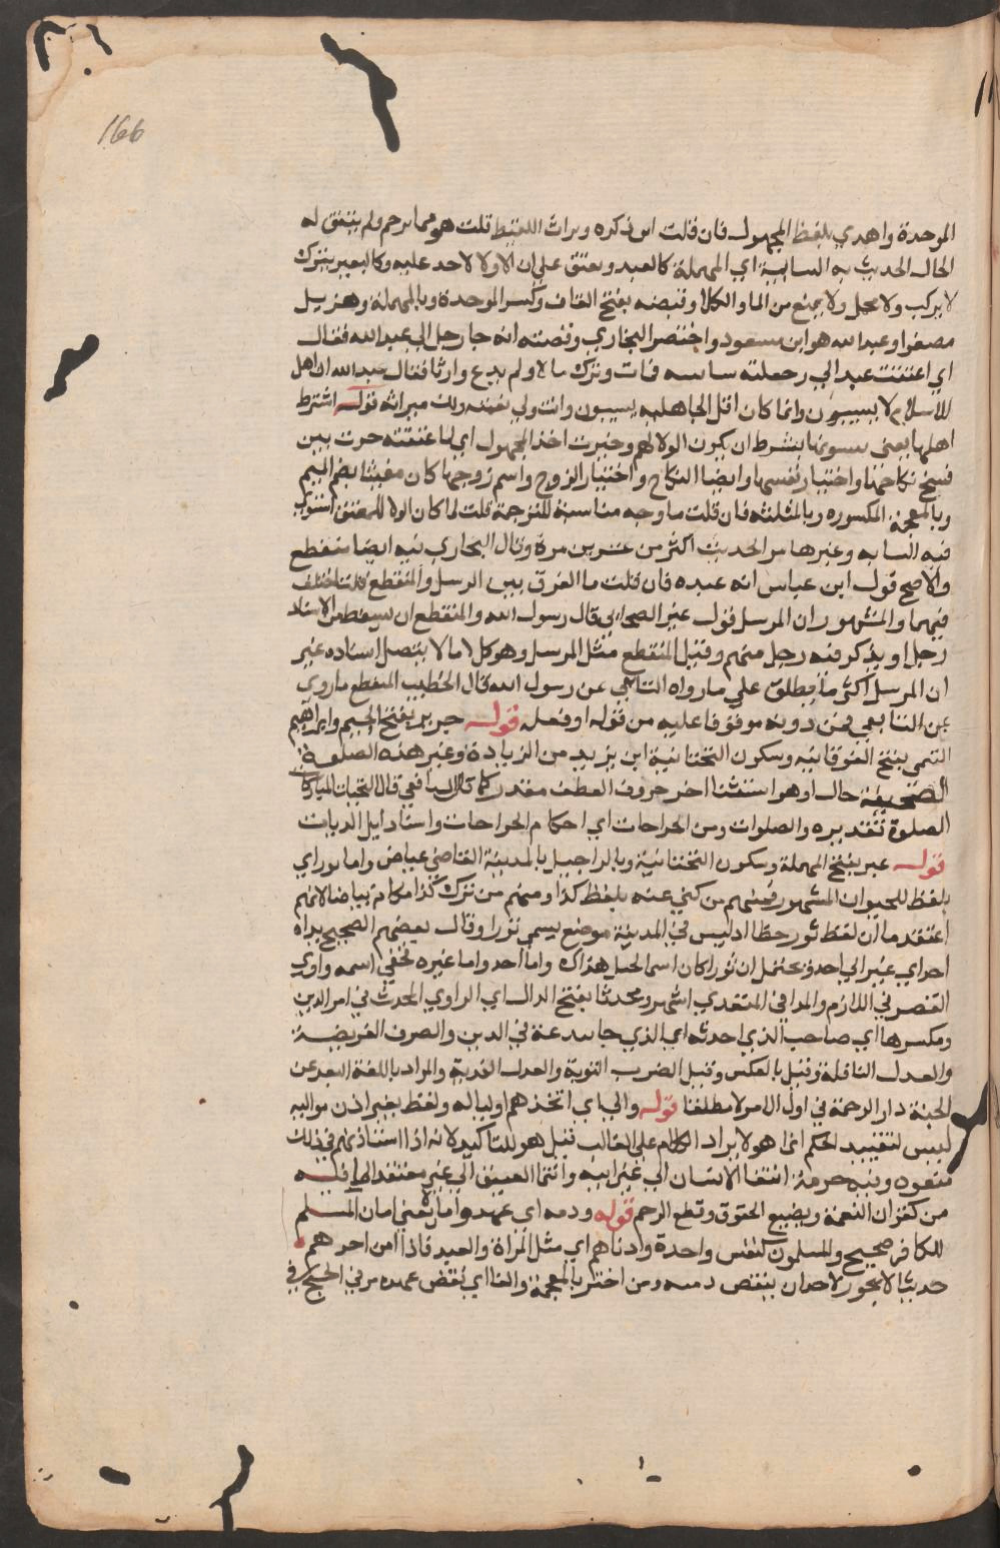 166
الموحدة واهدي بلفظ المجهول فان قلت اين ذكره ميراث اللقيط قلت هو مما ترجم ولم يتفق له
الحال الحديث به السايبة اي المهملة كالعبد ويعتق علي ان لا ولا لاحد عليه وكالبعير يترك
لا يركب ولا يحمل ولا يمنع من الما والكلا وقبيصه بفتح القاف وكسر الموحدة وبالمهملة وهزيل
مصغرا وعبد الله هو ابن مسعود واختصر البخاري وقصته انه جا رجل الي عبد الله فقال
اي اعتقت عبدا لي وجعلته سايبه فمات وترك مالا ولم يدع وارثا فقال عبد الله ان اهل
الاسلام لا يسيبون وانما كان اهل الجاهليه يسيبون وانت ولي نعمته ولك ميراثه قوله اشترط
اهلها يعني يبيعونها بشرط ان يكون الولا لهم وخيرت اخذ المجهول اي لما عتقته خيرت بين
فسخ نكاحها واختيار نفسها وامضا النكاح واختيار الزوج واسم زوجها كان مغيثا بضم الميم
وبالمعجمة المكسوره وبالمثلثه فان قلت ما وجه مناسبة للترجمة قلت لما كان الولا للمعتق استوي
فيه السايبه وغيرها مر الحديث اكثر من عشرين مرة وقال البخاري فيه ايضا منقطع
والاصح قول ابن عباس انه عبده فان قلت ما الفرق بين المرسل والمنقطع قلت اختلف
فيهما والمشهور ان المرسل قول غير الصحابي قال رسول الله والمنقطع ان يسقط من الاسناد
رجل او يذكر فيه رجل مبهم وقيل المنقطع مثل المرسل وهو كل ما لا يتصل اسناده غير
ان المرسل اكثر ما يطلق علي ما رواه التابعي عن رسول الله قال الخطيب المنقطع ما روي
عن التابعي فمن دونه موقوفا عليه من قوله او فعله قوله جرير بفتح الجيم وابراهيم
التيمي بفتح الفوقانيه وسكون التحتانية ابن يزيد من الزيادة وغير هذه الصلعة
الصحيفة حال او هو استثنا اخر حروف العطف مقدر كما قال الشافعي قال التحيات المباركات
الصلوة تقديره والصلوات ومن الجراحات اي احكام الجراحات واسنان ابل الديات
قوله عير بفتح المهملة وسكون التحتانية وبالرا جبل بالمدينة القاضي عياض واما ثور اي
بلفظ للحيوان المشهور فمنهم من كني عنه بلفظ كذا ومنهم من ترك كذا مكانه بياضا لانهم
اعتقدوا ان لفظ ثور خطا اذ ليس في المدينة موضع يسمي ثورا وقال بعضهم الصحيح بداه
احد اي عير الي احد وقد يحتمل ان ثورا كان اسما لجبل هناك واما احد واما غيره مخفي اسمه واوي
القصر في اللازم والمد في المتعدي اشهر ومحدثا بفتح الدال اي الراوي المحدث في امر الدين
وبكسرها اي صاحب الذي احدثه اي الذي جا ببدعة في الدين والصرف الفريضة
والعدل النافلة وقيل بالعكس وقيل الصرف التوبة والعدل الفدية والمراد باللعنة البعد عن
الجنة دار الرحمة في اول الامر لا مطلقا قوله والي اي اتخذهم اوليا له ولفظ بغير اذن مواليه
ليس لتقييد الحكم انما هو لايراد الكلام علي الغالب قيل هو للتاكيد لانه اذا استاذنهم في ذلك
منعوه وفيه حرمة انتفا الانسان الي غير ابيه وانتما العتيق الي غير معتقه لما فيه
من كفران النعمة ويضيع الحقوق وقطع الرحم قوله وذمه اي عهد وامان يعني امان المسلم
للكافر صحيح والمسلمون كنفس واحدة وادناهم اي مثل المراة والعبد فاذا امن احدهم
حديثا لا يجوز لاحد ان ينقض ذمته ومن اخفر بالمعجمة والفا اي نقض عهده مر في الحج في